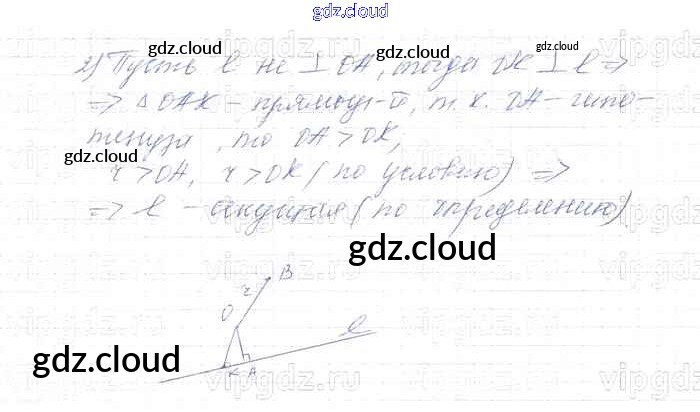 gdz.cloud
2) Пусть l не ⊥ OA, тогда OK ⊥ l ⇒
⇒ △ OAK – прямоуг-й, т.к. OA – гипо-
тенуза, то OA > OK,
r > OA, r > OK (по условию) ⇒
⇒ l – секущая (по определению)
gdz.cloud
gdz.cloud
gdz.cloud
gdz.cloud
gdz.cloud
B
r
O
l
K A
gdz.cloud
vipgdz.ru